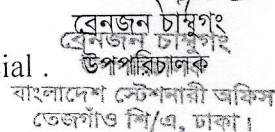 ব্রেনজন চাম্বুগং
ial . উপপরিচালক
বাংলাদেশ স্টেশনারী অফিস
তেজগাঁও শি/এ, ঢাকা।